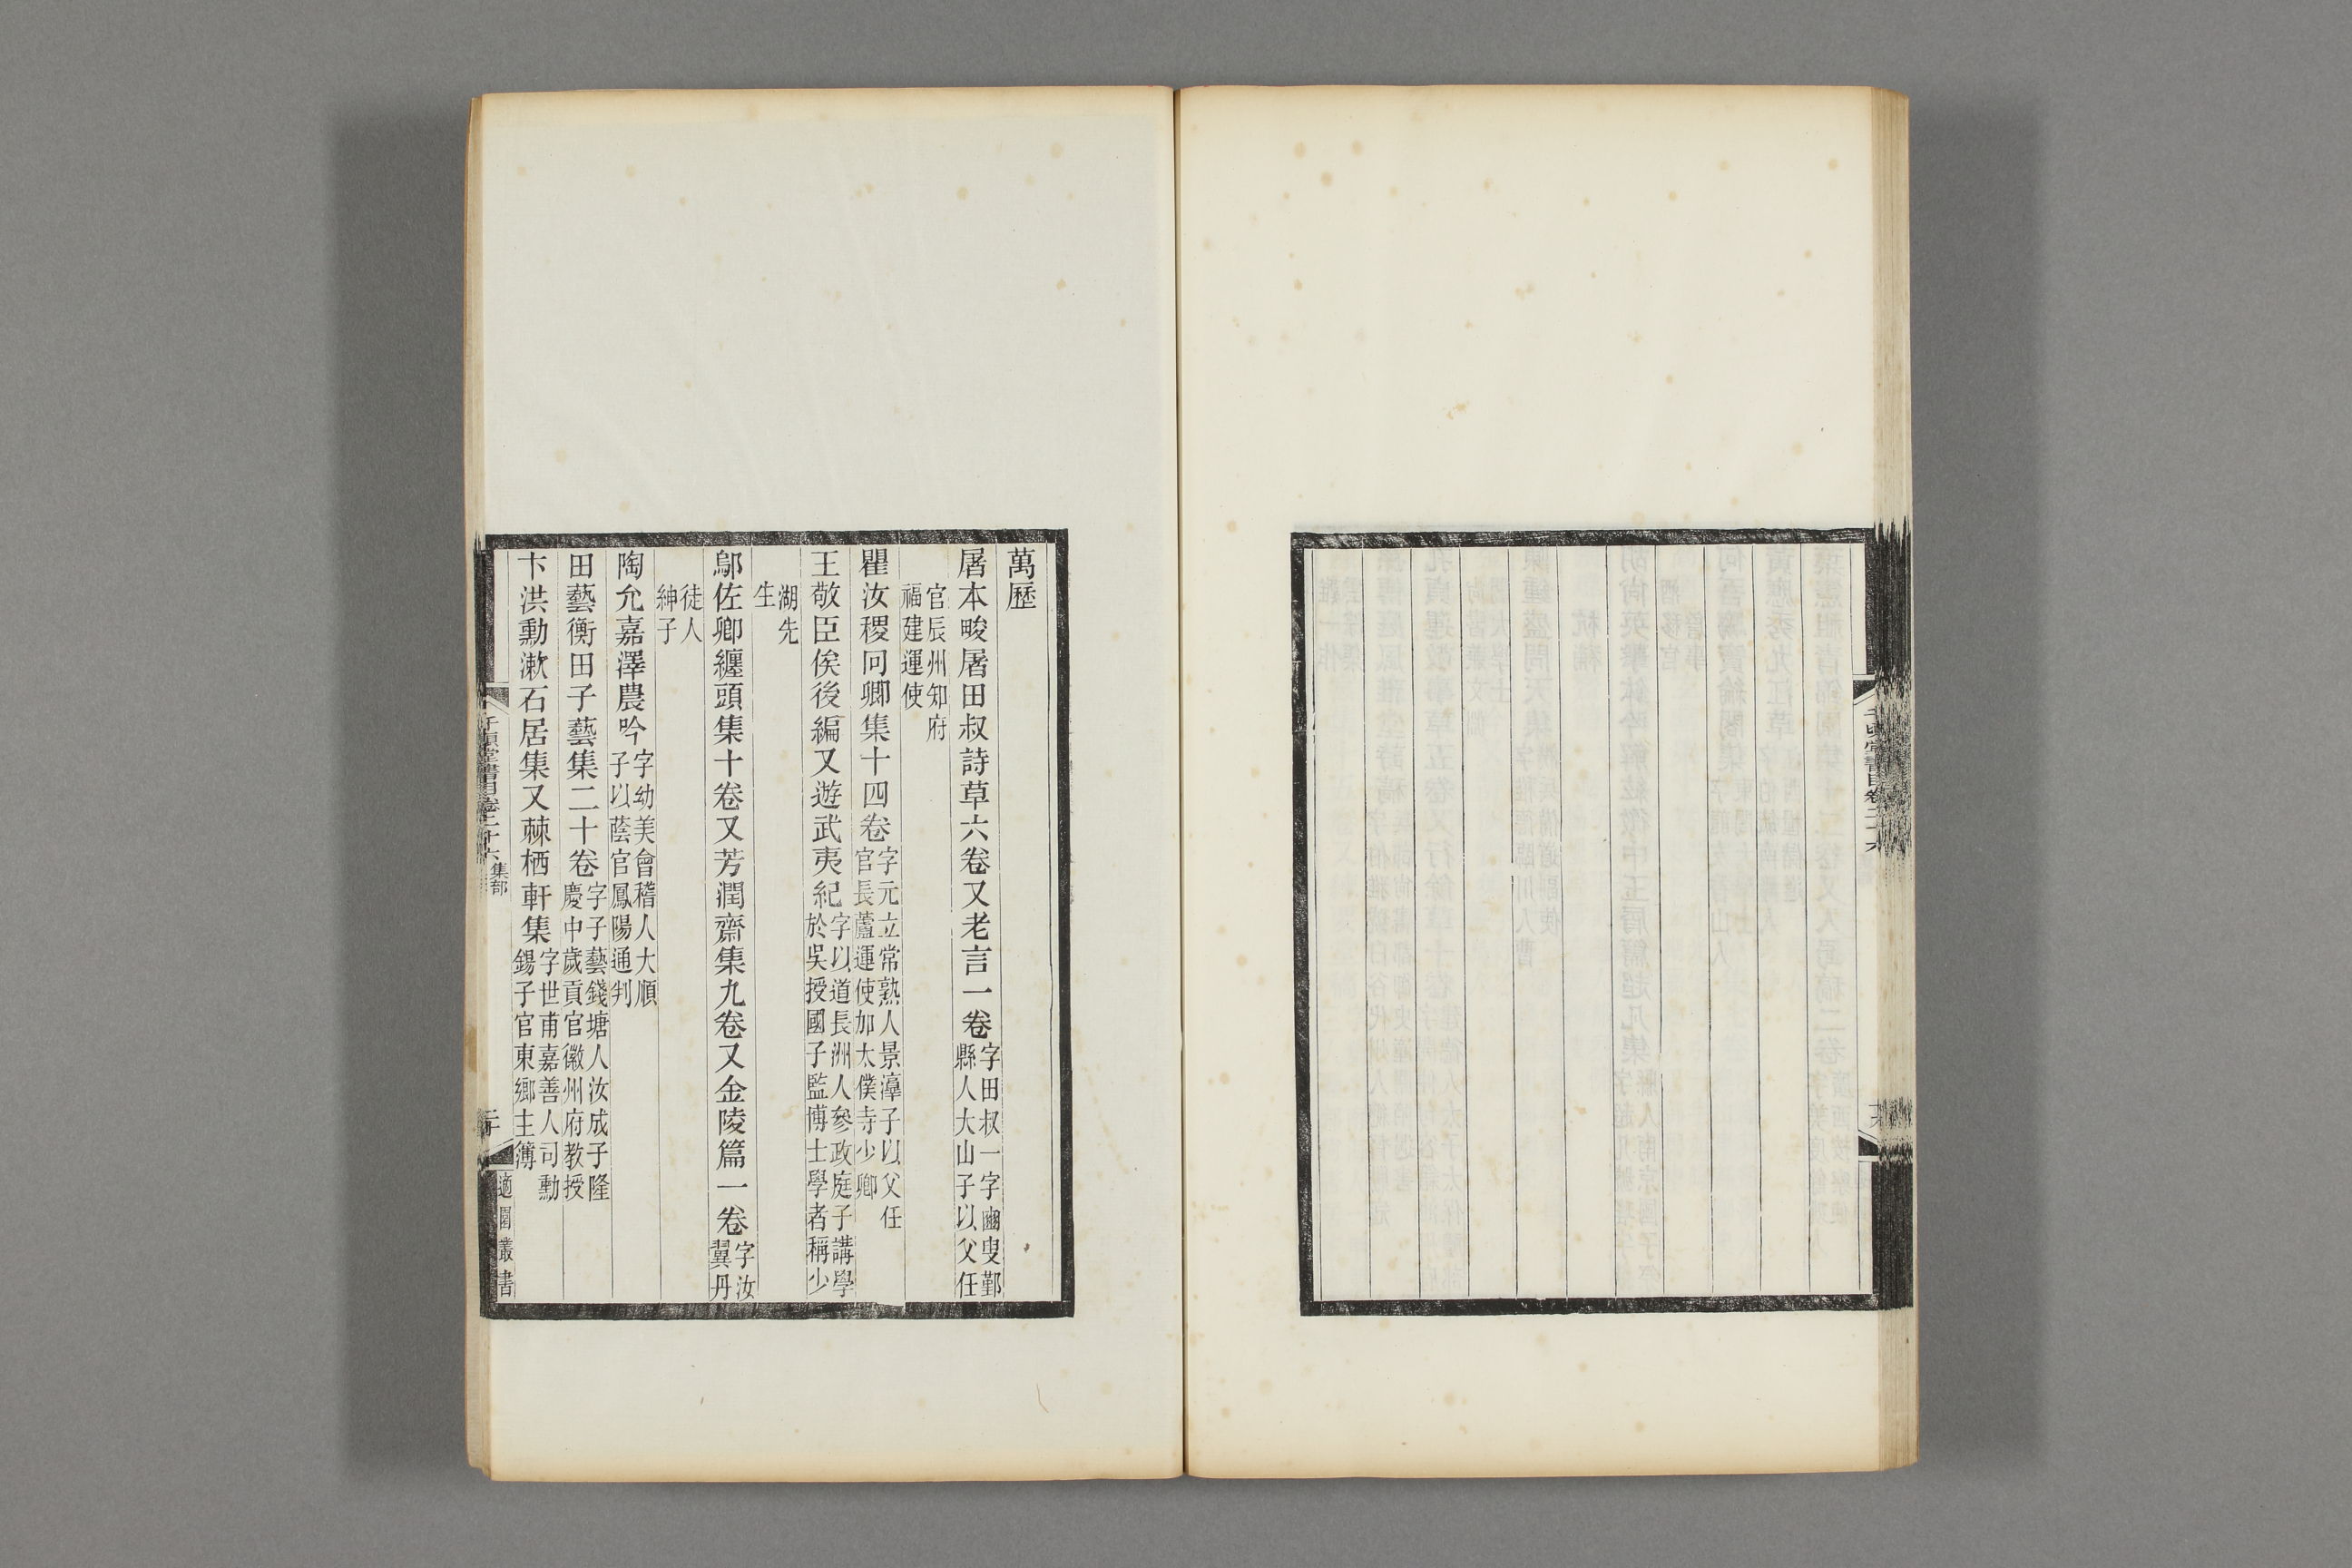 千頃堂書目卷二十六
萬歷
屠本畯屠田叔詩草六卷又老言一卷字田叔一字豳叟鄞縣人大山子以父任
官辰州知府福建運使
瞿汝稷冏卿集十四卷字元立常熟人景淳子以父任官長蘆運使加太僕寺少卿
王敬臣俟後編又遊武夷紀字以道長洲人參政庭子講學於吳授國子監博士學者稱少
湖先生
鄔佐卿纏頭集十卷又芳潤齋集九卷又金陵篇一卷字汝翼丹
徒人紳子
陶允嘉澤農吟字幼美會稽人大順子以蔭官鳳陽通判
田藝衡田子藝集二十卷字子藝錢塘人汝成子隆慶中歲貢官徽州府教授
卞洪勳漱石居集又棘栖軒集字世甫嘉善人司勳錫子官東鄉主簿
千頃堂書目卷二十六 集部
二十
適園叢書